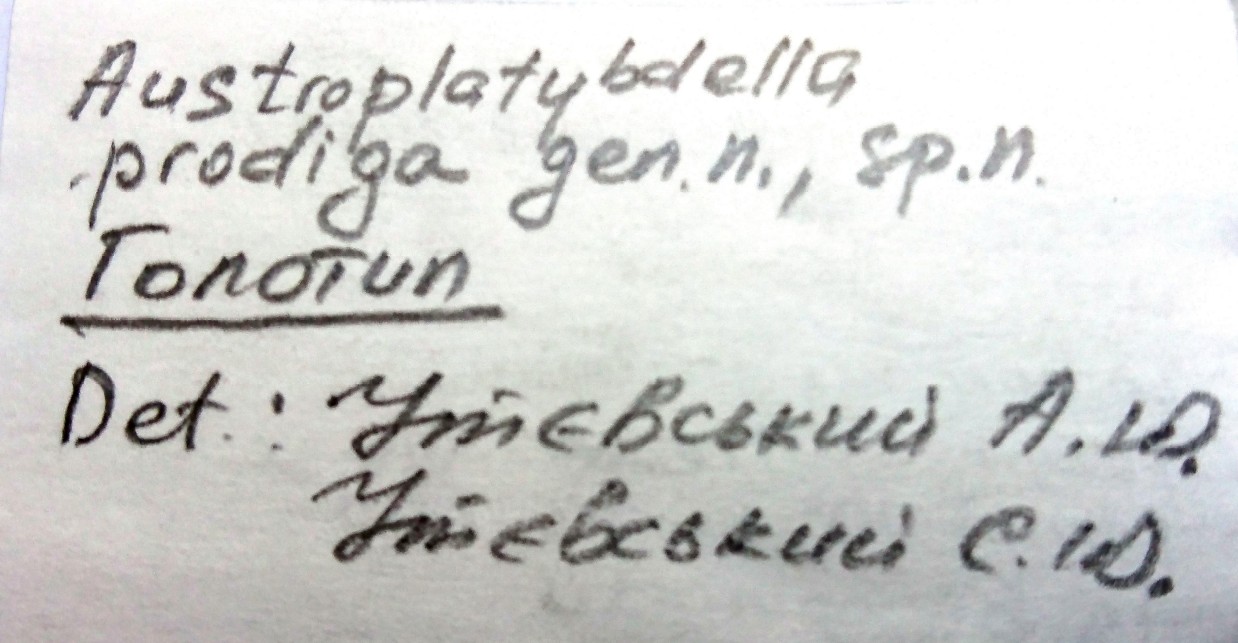 Austroplatybdella
prodiga gen.n., sp.n.
Голотип
Det.: Утєвський А.Ю.
Утєвський С.Ю.